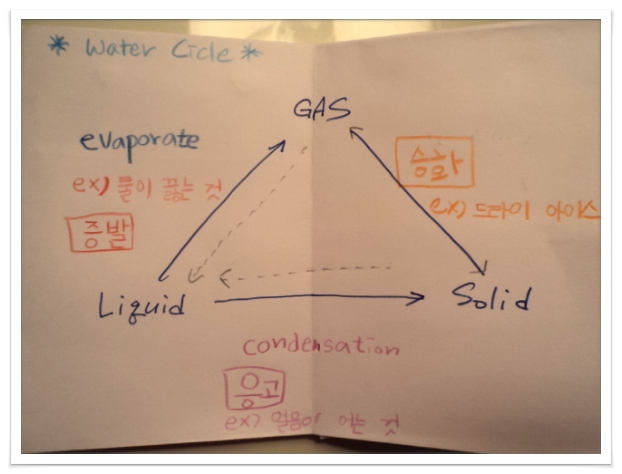 * Water Cicle *
GAS
evaporate
ex) 물이 끓는 것
증발
승화
ex) 드라이 아이스
Liquid
Solid
condensation
응고
ex) 얼음이 어는 것